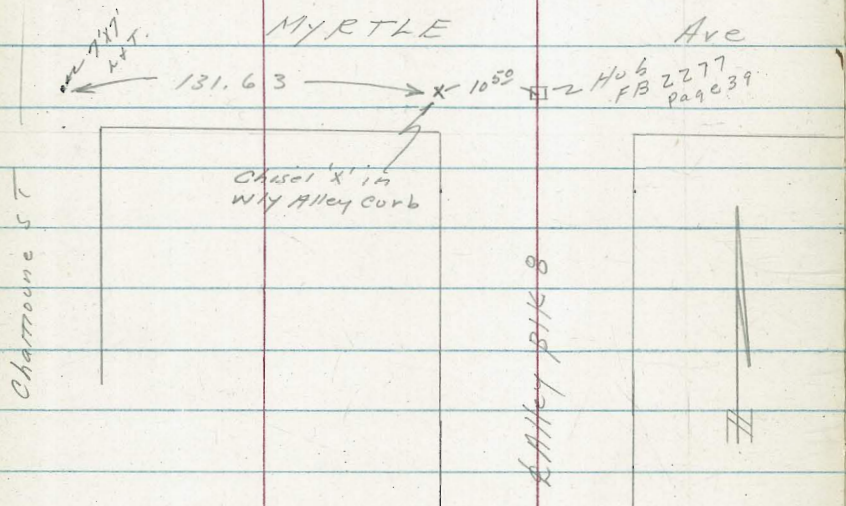 MYRTLE Ave
7'x7'
L&T.
131.63
x 10⁵⁰
Hub
FB 2277
page 39
Chisel 'x' in
Wly Alley Curb
Chamoune ST
Alley Blk 8